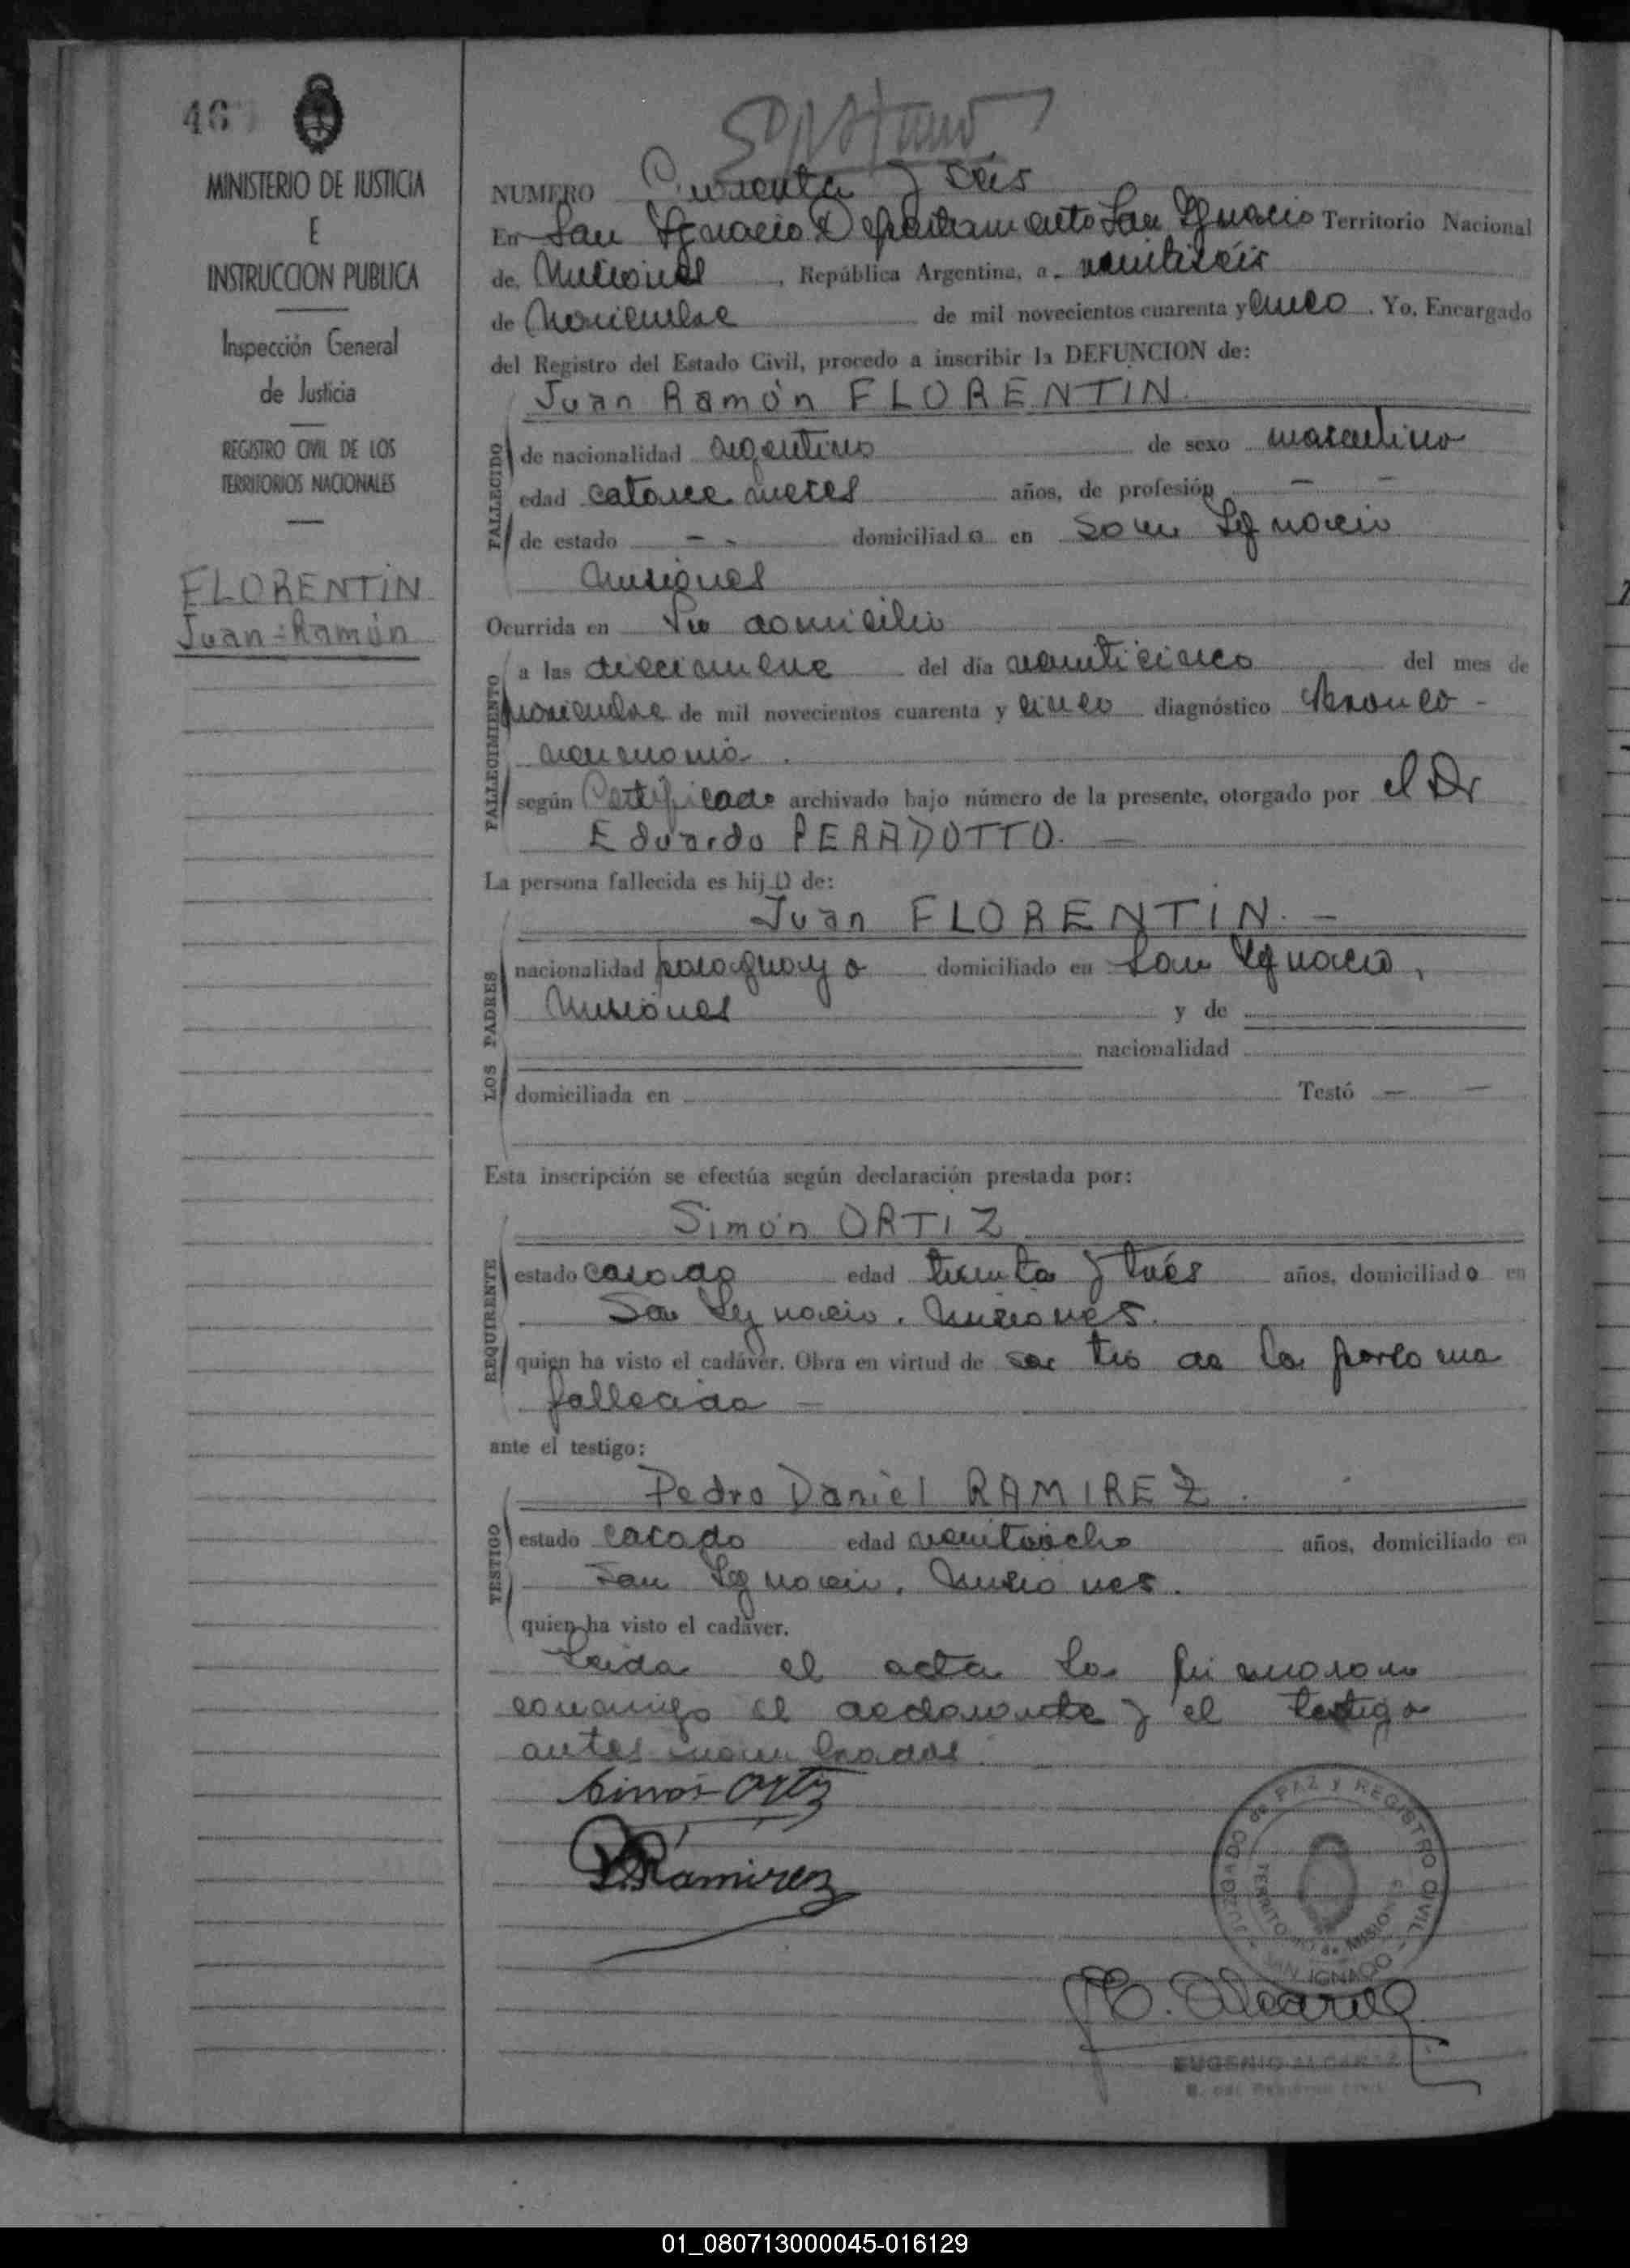 46
MINISTERIO DE JUSTICIA
E
INSTRUCCION PUBLICA
Inspección General
de Justicia
REGISTRO CIVIL DE LOS
TERRITORIOS NACIONALES
FLORENTIN
Juan Ramón
NUMERO Cuarenta y seis
En San Ignacio Departamento San Ignacio Territorio Nacional
de Misiones, República Argentina, a veintiseis
de Noviembre de mil novecientos cuarenta y cinco. Yo, Encargado
del Registro del Estado Civil, procedo a inscribir la DEFUNCION de:
Juan Ramón FLORENTIN
FALLECIDO
de nacionalidad argentino de sexo masculino
edad catorce meses años, de profesión - -
de estado - - domiciliado en San Ignacio
Misiones
Ocurrida en Su domicilio
FALLECIMIENTO
a las diecinueve del día veinticinco del mes de
noviembre de mil novecientos cuarenta y cinco diagnóstico Bronco-
neumonia.
según Certificado archivado bajo número de la presente, otorgado por el Dr
Eduardo PERADOTTO. —
La persona fallecida es hijo de:
Juan FLORENTIN. —
LOS PADRES
nacionalidad paraguayo domiciliado en San Ignacio,
Misiones y de
nacionalidad
domiciliada en Testó — —
Esta inscripción se efectúa según declaración prestada por:
Simón ORTIZ
REQUIRENTE
estado casado edad treinta y trés años, domiciliado en
San Ignacio. Misiones.
quien ha visto el cadáver. Obra en virtud de ser tio de la persona
fallecida —
ante el testigo:
Pedro Daniel RAMIREZ.
TESTIGO
estado casado edad veintiocho años, domiciliado en
San Ignacio, Misiones.
quien ha visto el cadáver.
Leida el acta la firmaron
conmigo el declarante y el testigo
antes nombrados.
Simón Ortiz
P. Ramirez
JUZGADO de PAZ y REGISTRO CIVIL
TERRITORIO de MISIONES
SAN IGNACIO
E. Alcaraz
EUGENIO ALCARAZ
01_080713000045-016129